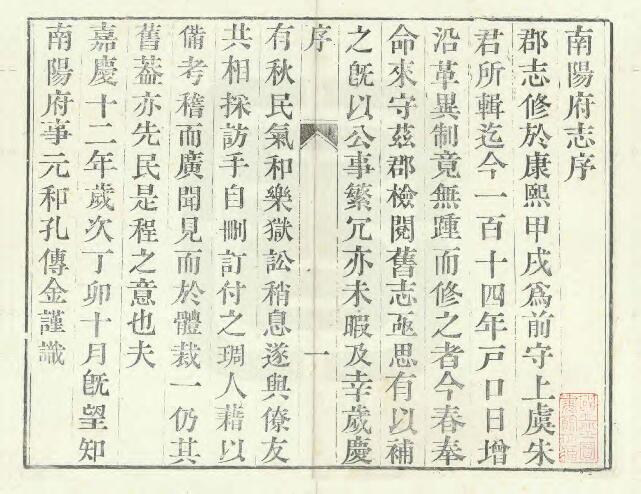 南陽府志序
郡志修於康熙甲戌爲前守上虞朱
君所輯迄今一百十四年戸口日增
沿革異制竟無踵而修之者今春奉
命來守兹郡檢閱舊志亟思有以補
之旣以公事繁冗亦未暇及幸歲慶
序
一
有秋民氣和樂獄訟稍息遂與僚友
共相採訪手自刪訂付之琱人藉以
備考稽而廣聞見而於體裁一仍其
舊葢亦先民是程之意也夫
嘉慶十二年歲次丁卯十月旣望知
南陽府事元和孔傳金謹識